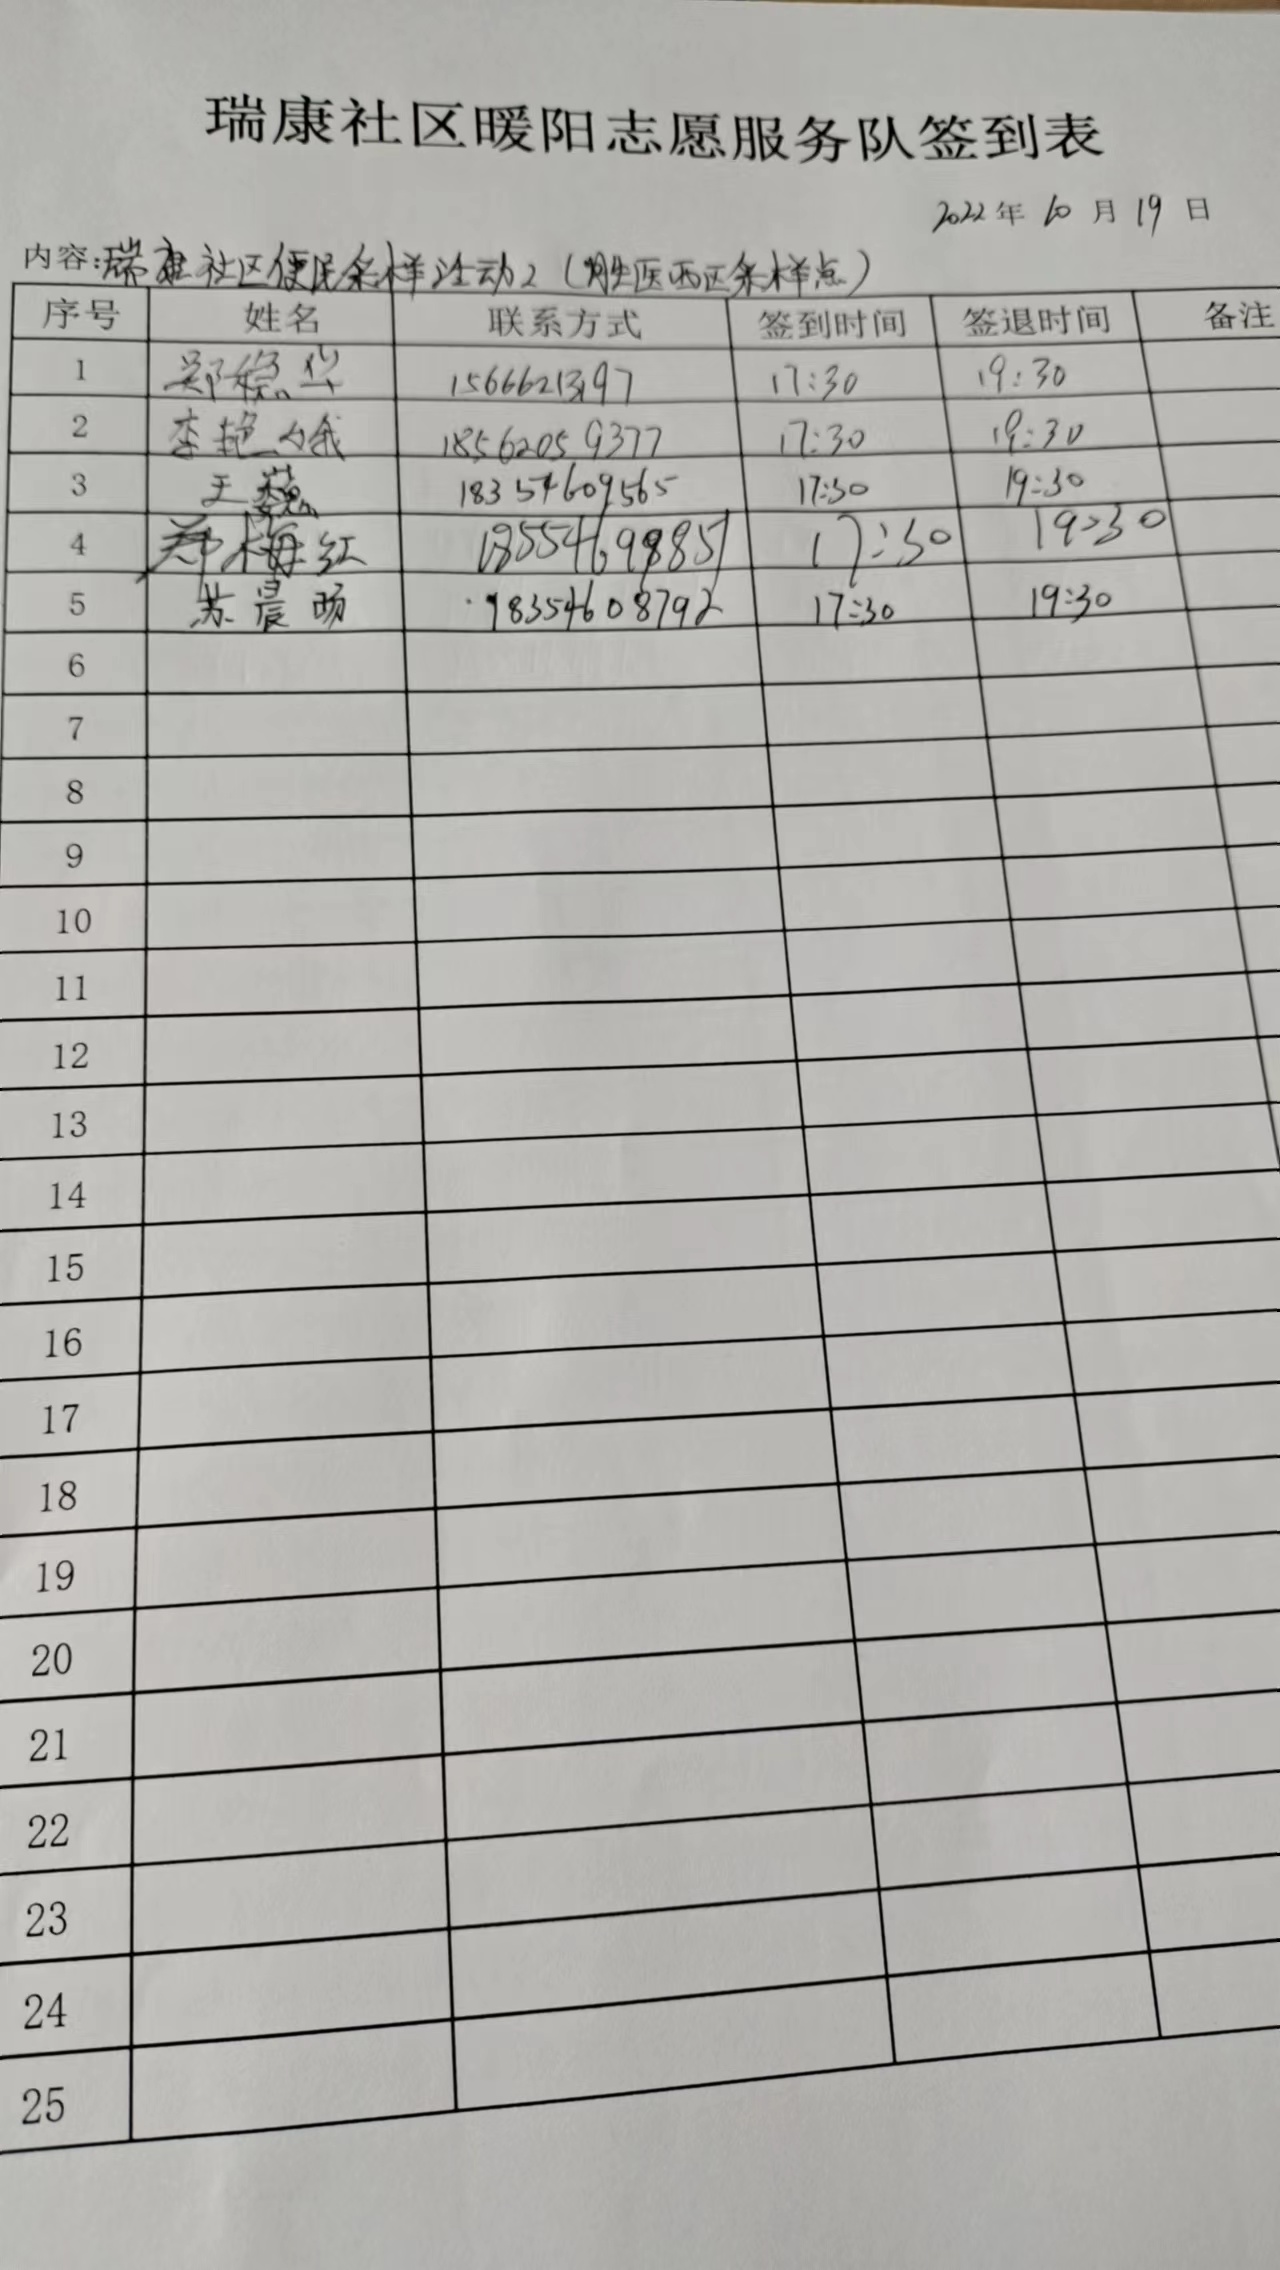 瑞康社区暖阳志愿服务队签到表
2022年10月19日
内容:瑞康社区便民采样活动2(胜医西区采样点)
序号 姓名 联系方式 签到时间 签退时间 备注
1 15666213197 17:30 19:30
2 李艳娥 18562059377 17:30 19:30
3 王巍 18354609565 17:30 19:30
4 郑梅红 18554698851 17:30 19:30
5 苏晨旸 18354608792 17:30 19:30
6
7
8
9
10
11
12
13
14
15
16
17
18
19
20
21
22
23
24
25